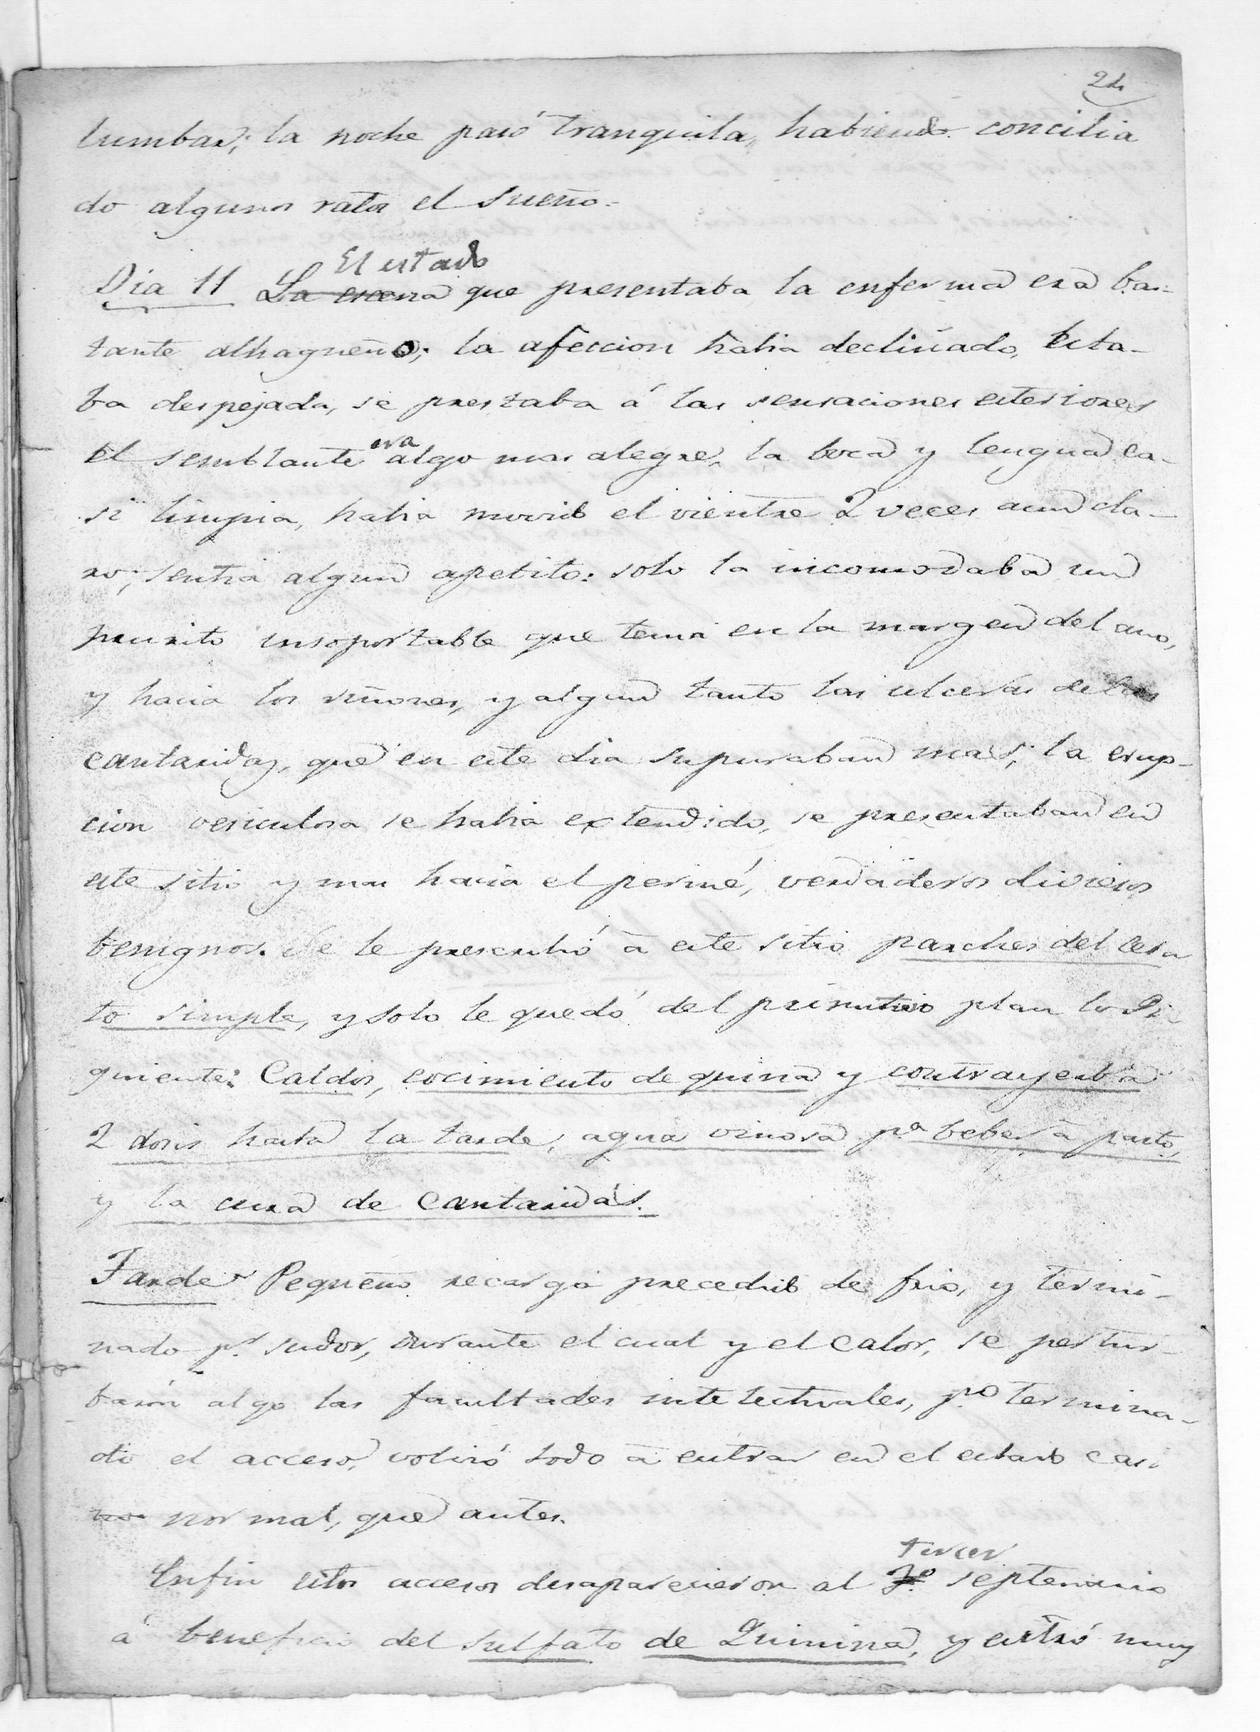 24
lumbar; la noche pasó tranquila, habiendo concilia
do algunos ratos el sueño.
El estado
Dia 11 La escena que presentaba la enferma era bas-
tante alhagueño; la afeccion habia declinado, esta-
ba despejada, se prestaba á las sensaciones esteriores
era
el semblante algo mas alegre, la boca y lengua ca-
si limpia, habia movido el vientre 2 veces aun cla-
ro; sentia algun apetito: solo la incomodaba un
prurito insoportable que tenia en la margen del ano,
y hacia los riñones, y algun tanto las ulceras de las
cantaridas, que en este dia supuraban mas; la erup-
cion vesiculosa se habia extendido, se presentaban en
este sitio y mas hacia el periné, verdaderos diviesos
benignos. Se le prescribió á este sitio parches del cera
to simple, y solo le quedó del primitivo plan lo si-
guiente: Caldos, cocimiento de quina y contrayerba
2 dosis hasta la tarde; agua vinosa pa beber á pasto,
y la cura de Cantaridas.
Tarde Pequeño recargo precedido de frio, y termi-
nado pr. sudor, durante el cual y el calor, se pertur-
baron algo las facultades intelectuales, pro termina-
do el acceso, volvió todo á entrar en el estado casi
normal, que antes.
tercer
Enfin estos accesos desaparecieron al 3o. septenario
á beneficio del sulfato de Quinina, y entró muy